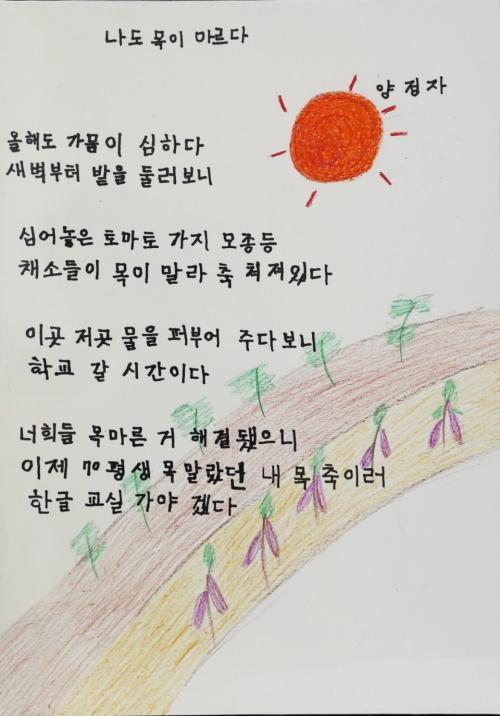 나도 목이 마르다
양점자
올해도 가뭄이 심하다
새벽부터 밭을 둘러보니
심어놓은 토마토 가지 모종등
채소들이 목이 말라 축 쳐져있다
이곳 저곳 물을 퍼부어 주다보니
학교 갈 시간이다
너희들 목마른 거 해결됐으니
이제 70평생 목말랐던 내 목 축이러
한글 교실 가야 겠다